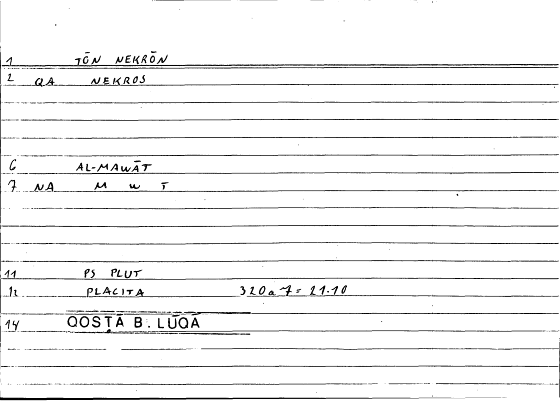 1 TŌN NEKRŌN
2 QA NEKROS
6 AL-MAWĀT
7 NA M W T
11 PS PLUT
12 PLACITA 320a7 = 21.10
14 QOSṬĀ B. LŪQĀ